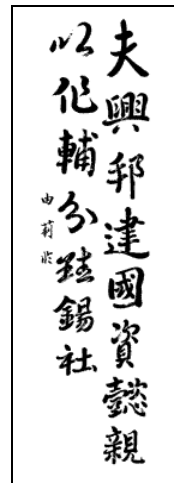 夫興邦建國資懿親
以作輔分珪錫社
由莉